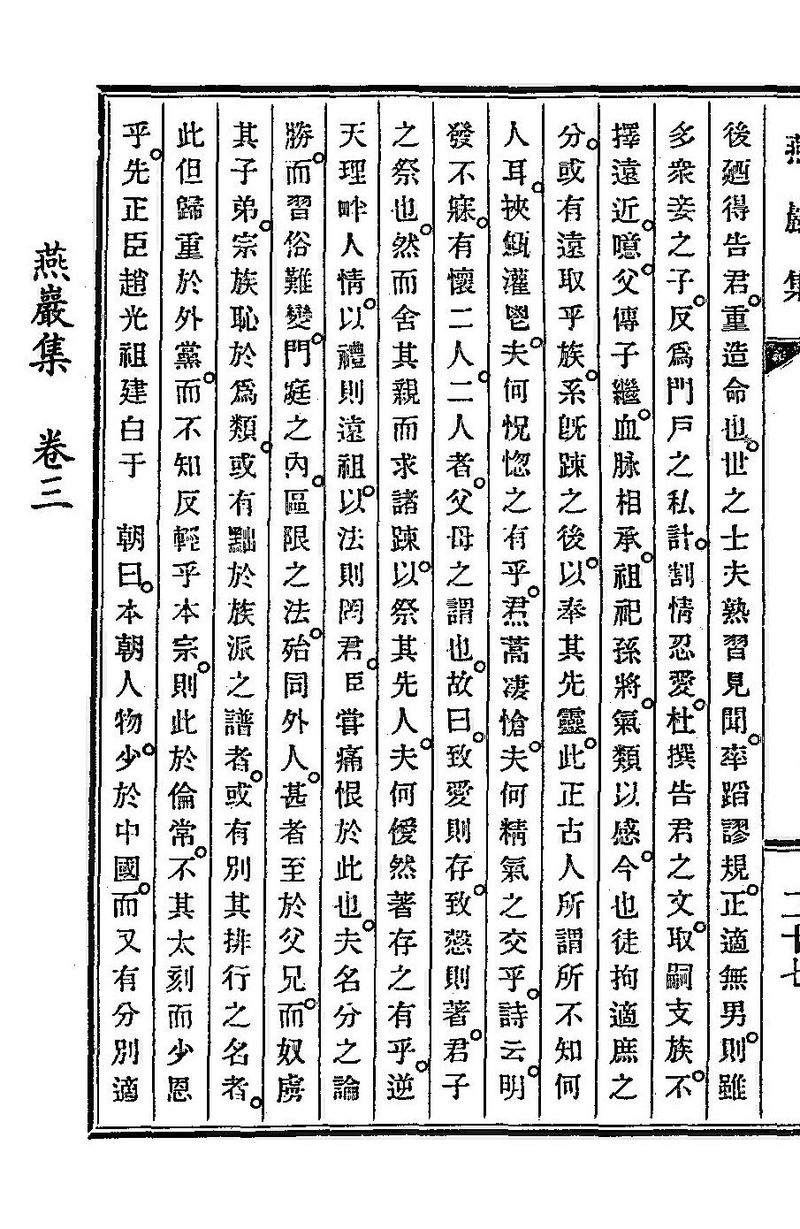 燕巖集
二十七
後廼得告君。重造命也。世之士夫熟習見聞。率蹈謬規。正適無男。則雖
多衆妾之子。反爲門戶之私計。割情忍愛。杜撰告君之文。取嗣支族。不
擇遠近。噫。父傳子繼。血脉相承。祖祀孫將。氣類以感。今也徒拘適庶之
分。或有遠取乎族。系旣踈之後。以奉其先靈。此正古人所謂所不知何
人耳。挾甁灌鬯。夫何怳惚之有乎。焄蒿凄愴。夫何精氣之交乎。詩云。明
發不寐。有懷二人。二人者。父母之謂也。故曰。致愛則存。致慤則著。君子
之祭也。然而舍其親而求諸踈。以祭其先人。夫何僾然著存之有乎。逆
天理畔人情。以禮則遠祖。以法則罔君。臣甞痛恨於此也。夫名分之論
勝。而習俗難變。門庭之內。區限之法。殆同外人。甚者至於父兄。而奴虜
其子弟。宗族恥於爲類。或有黜於族派之譜者。或有別其排行之名者。
此但歸重於外黨。而不知反輕乎本宗。則此於倫常。不其太刻而少恩
乎。先正臣趙光祖建白于 朝曰。本朝人物。少於中國。而又有分別適
燕巖集 卷三